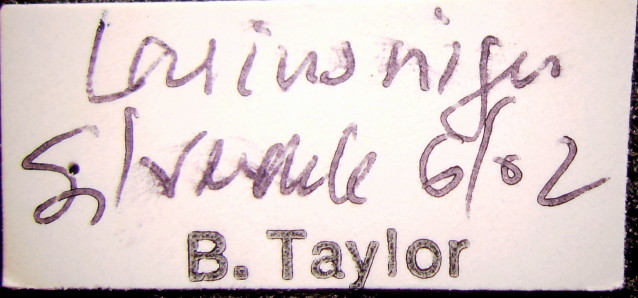 Lasius niger
Silverdale 6/02
B. Taylor